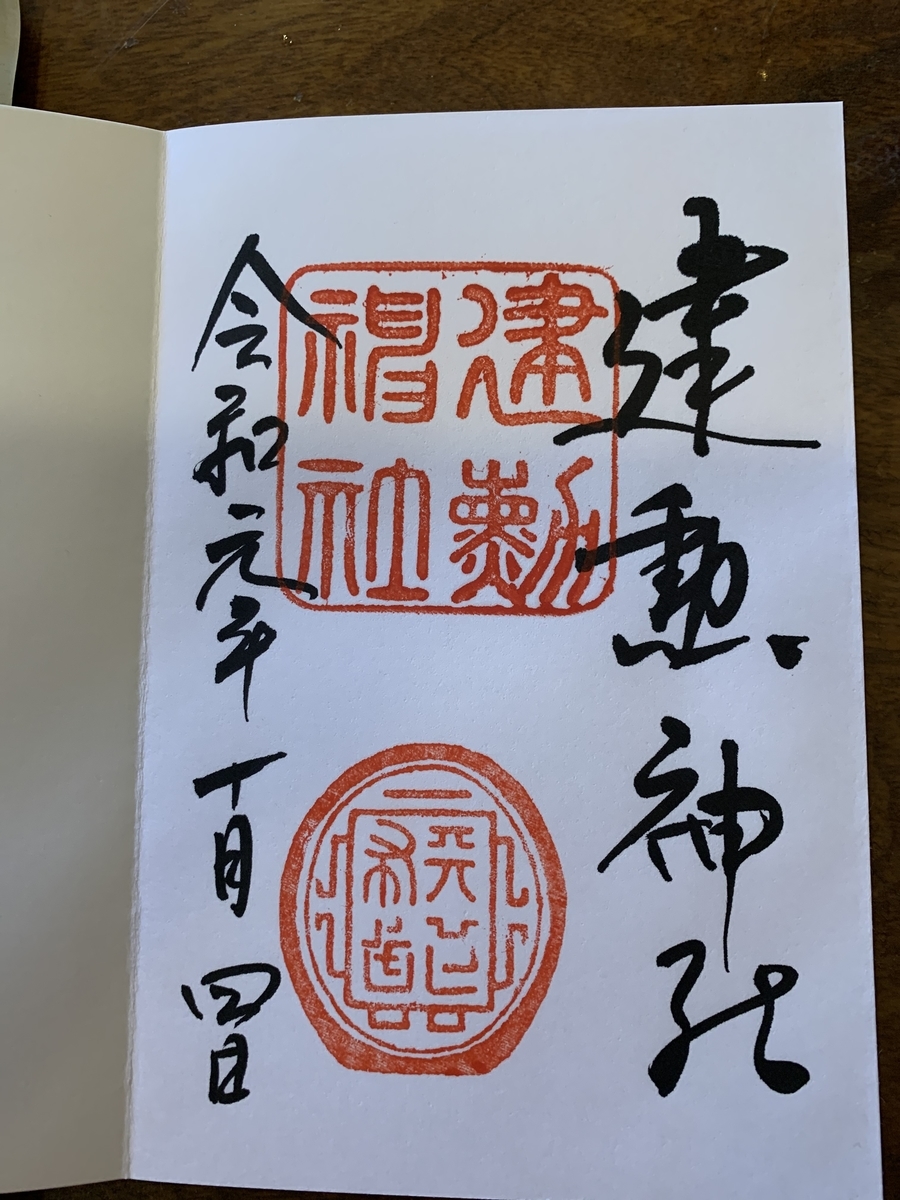 建勲神社
建勲
神社
天下
布武
令和元年十月四日